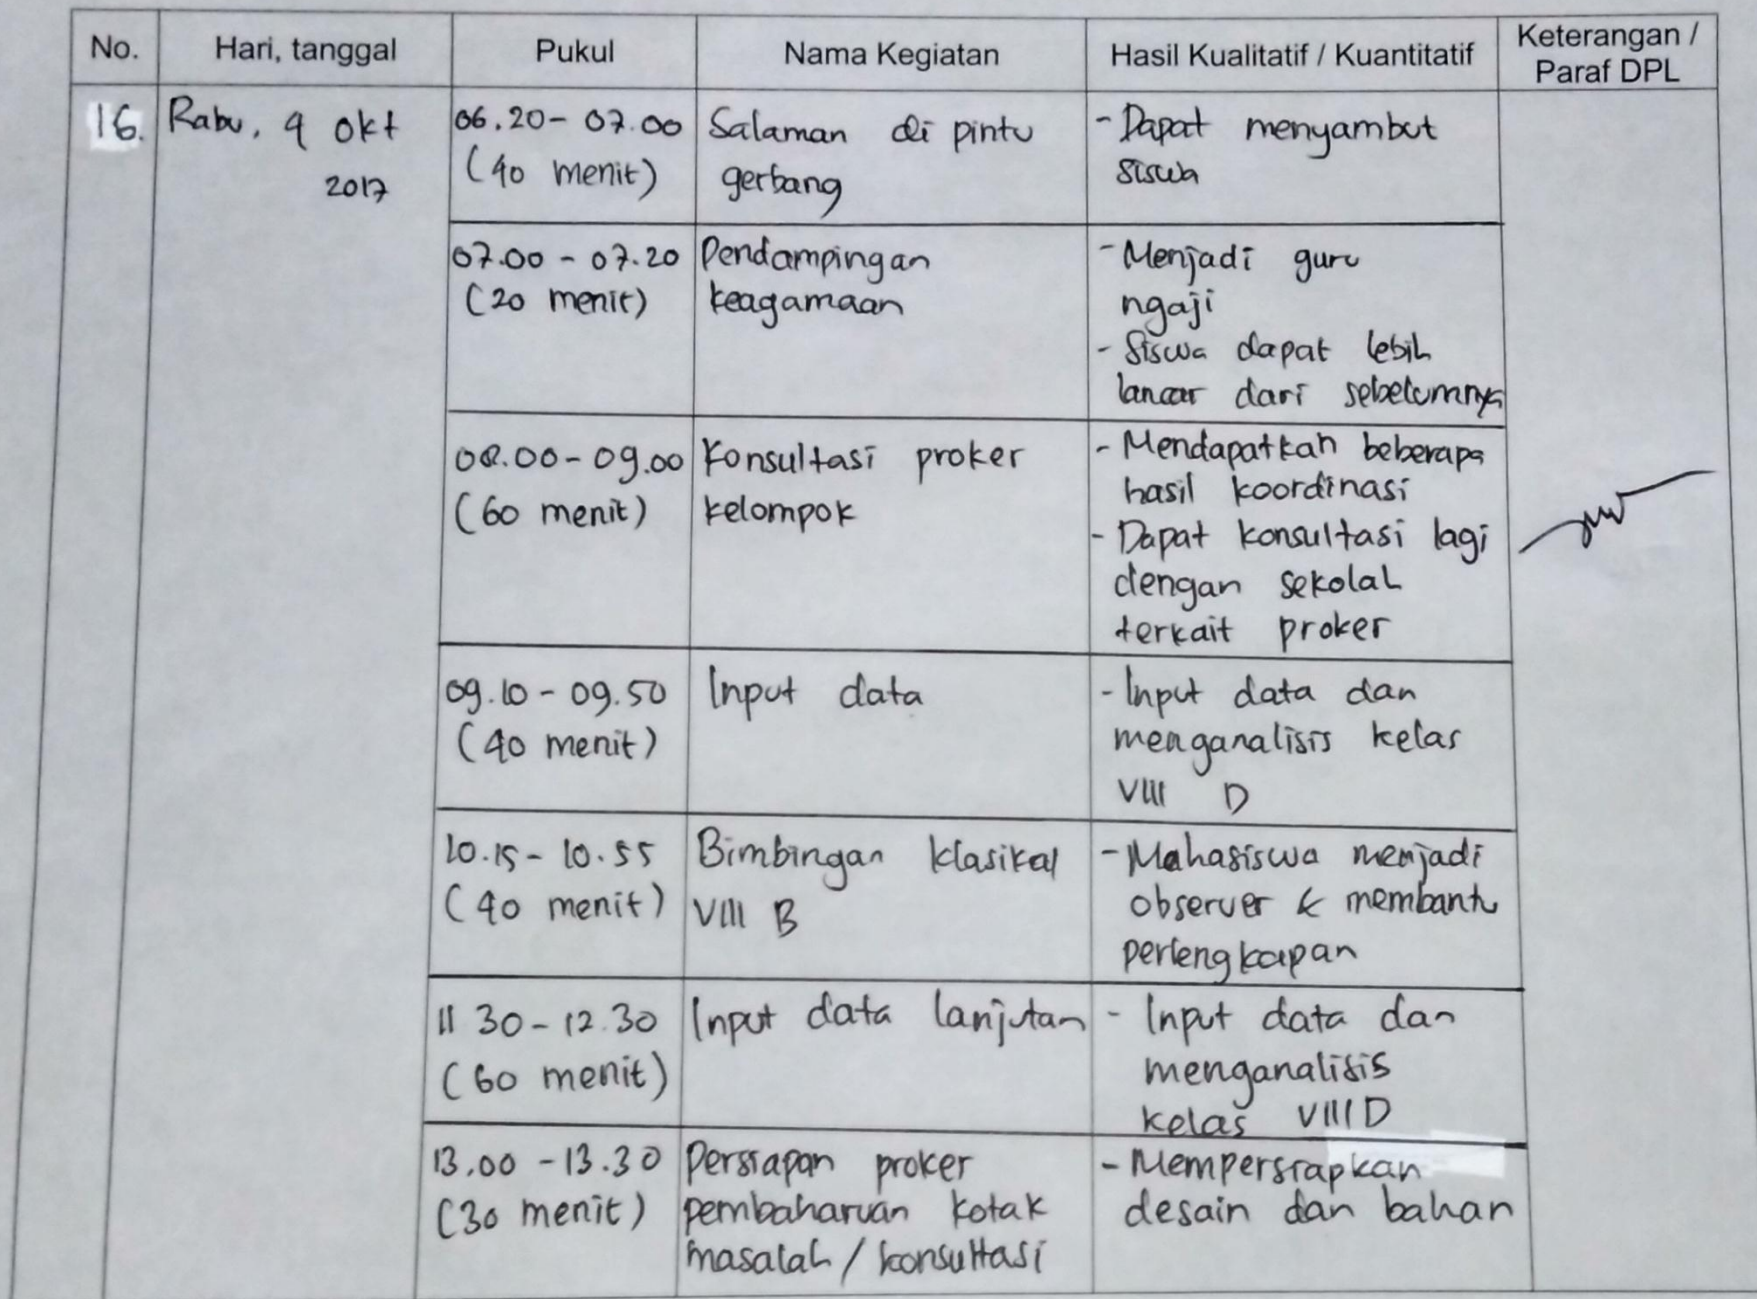 No. Hari, tanggal Pukul Nama Kegiatan Hasil Kualitatif / Kuantitatif Keterangan / Paraf DPL
16. Rabu, 4 Okt 2017
06.20 - 07.00
(40 menit)
Salaman di pintu
gerbang
- Dapat menyambut
siswa
07.00 - 07.20
(20 menit)
Pendampingan
keagamaan
- Menjadi guru
ngaji
- Siswa dapat lebih
lancar dari sebelumnya
08.00 - 09.00
(60 menit)
Konsultasi proker
kelompok
- Mendapatkan beberapa
hasil koordinasi
- Dapat konsultasi lagi
dengan sekolah
terkait proker
09.10 - 09.50
(40 menit)
Input data
- Input data dan
menganalisis kelas
VIII D
10.15 - 10.55
(40 menit)
Bimbingan klasikal
VIII B
- Mahasiswa menjadi
observer & membantu
perlengkapan
11 30 - 12.30
(60 menit)
Input data lanjutan
- Input data dan
menganalisis
kelas VIII D
13.00 - 13.30
(30 menit)
Persiapan proker
pembaharuan kotak
masalah / konsultasi
- Mempersiapkan
desain dan bahan